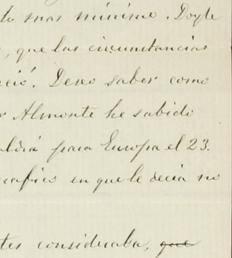 lo mas mínimo. Doyle
, que las circunstancias
ció. Deseo saber como
r Almonte he sabido
aldrá para Europa el 23.
gráfico en que le decía no
tes consideraba, que